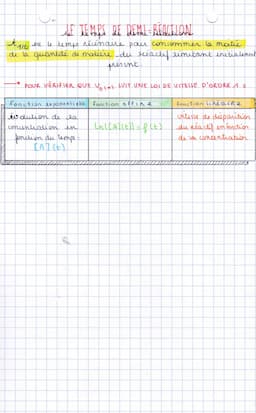 LE TEMPS DE DEMI-RÉACTION
t1/2 est le temps nécessaire pour consommer la moitié
de la quantité de matière du réactif limitant initialement
présent.
→ POUR VÉRIFIER QUE V SUIT UNE LOI DE VITESSE D'ORDRE 1 :
fonction exponentielle fonction affine fonction linéaire
évolution de la
concentration en
fonction du temps :
[A](t)
ln([A](t)) = f(t)
vitesse de disparition
du réactif en fonction
de sa concentration